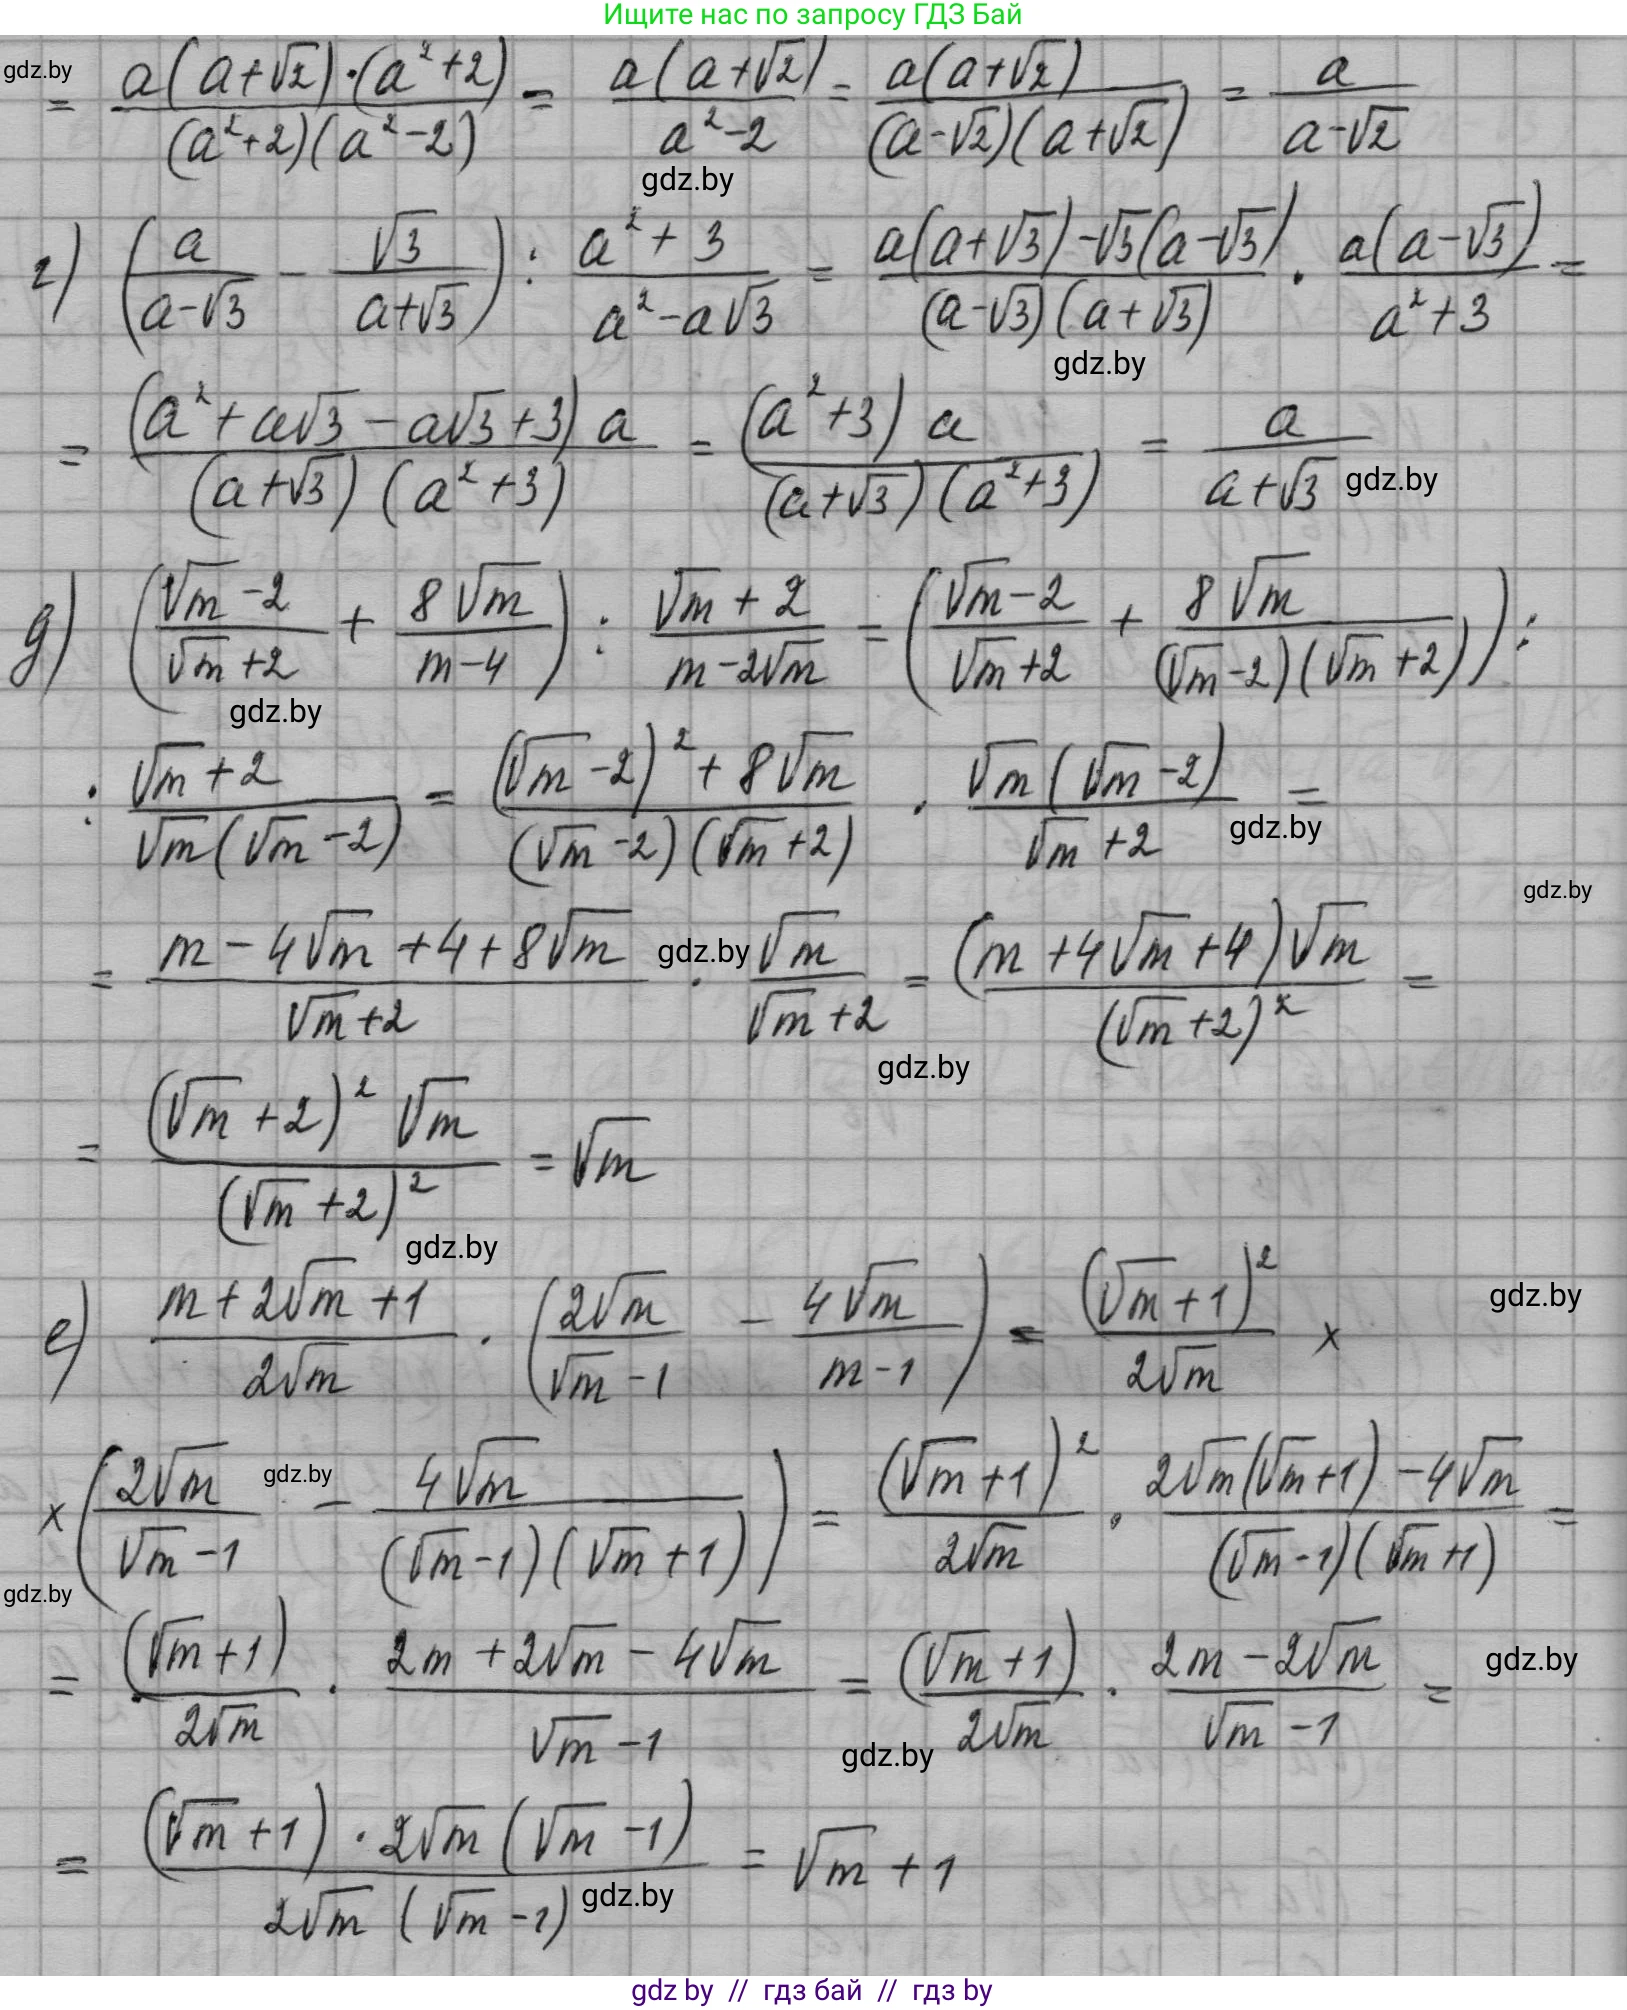 Ищите нас по запросу ГДЗ Бай
gdz.by
= a(a+√2)·(a²+2) / (a²+2)(a²-2) = a(a+√2) / a²-2 = a(a+√2) / (a-√2)(a+√2) = a / a-√2
gdz.by
г) (a / a-√3 - √3 / a+√3) : a²+3 / a²-a√3 = a(a+√3)-√3(a-√3) / (a-√3)(a+√3) · a(a-√3) / a²+3 =
gdz.by
= (a²+a√3-a√3+3)a / (a+√3)(a²+3) = (a²+3)a / (a+√3)(a²+3) = a / a+√3 gdz.by
д) (√m-2 / √m+2 + 8√m / m-4) : √m+2 / m-2√m = (√m-2 / √m+2 + 8√m / (√m-2)(√m+2)) :
gdz.by
: √m+2 / √m(√m-2) = (√m-2)²+8√m / (√m-2)(√m+2) · √m(√m-2) / √m+2 =
gdz.by
gdz.by
= m-4√m+4+8√m / √m+2 · √m / √m+2 = (m+4√m+4)√m / (√m+2)² =
gdz.by
gdz.by
= (√m+2)²√m / (√m+2)² = √m
gdz.by
е) m+2√m+1 / 2√m · (2√m / √m-1 - 4√m / m-1) = (√m+1)² / 2√m ×
gdz.by
× (2√m / √m-1 - 4√m / (√m-1)(√m+1)) = (√m+1)² / 2√m · 2√m(√m+1)-4√m / (√m-1)(√m+1) =
gdz.by
gdz.by
= (√m+1) / 2√m · 2m+2√m-4√m / √m-1 = (√m+1) / 2√m · 2m-2√m / √m-1 =
gdz.by
gdz.by
= (√m+1)·2√m(√m-1) / 2√m(√m-1) = √m+1
gdz.by
gdz by // гдз бай // гдз by